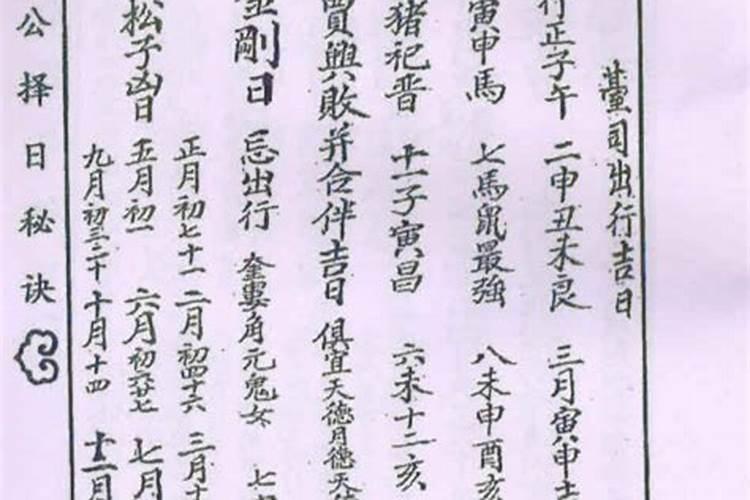 臺司出行吉日
行正子午 二申丑未良 三月寅申
寅申馬 七馬鼠最強 八未申酉亥
猪祀晋 十一子寅昌 六未十二亥
買興敗并合伴吉日 俱宜天德月德天德
金剛日 忌出行 奎婁角亢鬼女 七
正月初七十一 二月初四十六 三月十
松子凶日 五月初一 六月初六廿七 七月
九月初三二十 十月十四 十一月
公择日秘诀